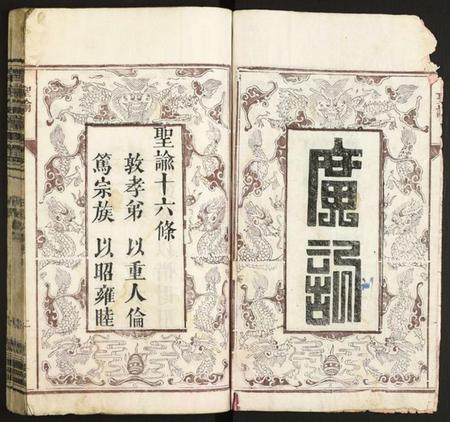 廣訓
聖諭十六條
敦孝弟以重人倫
篤宗族以昭雍睦
聖諭